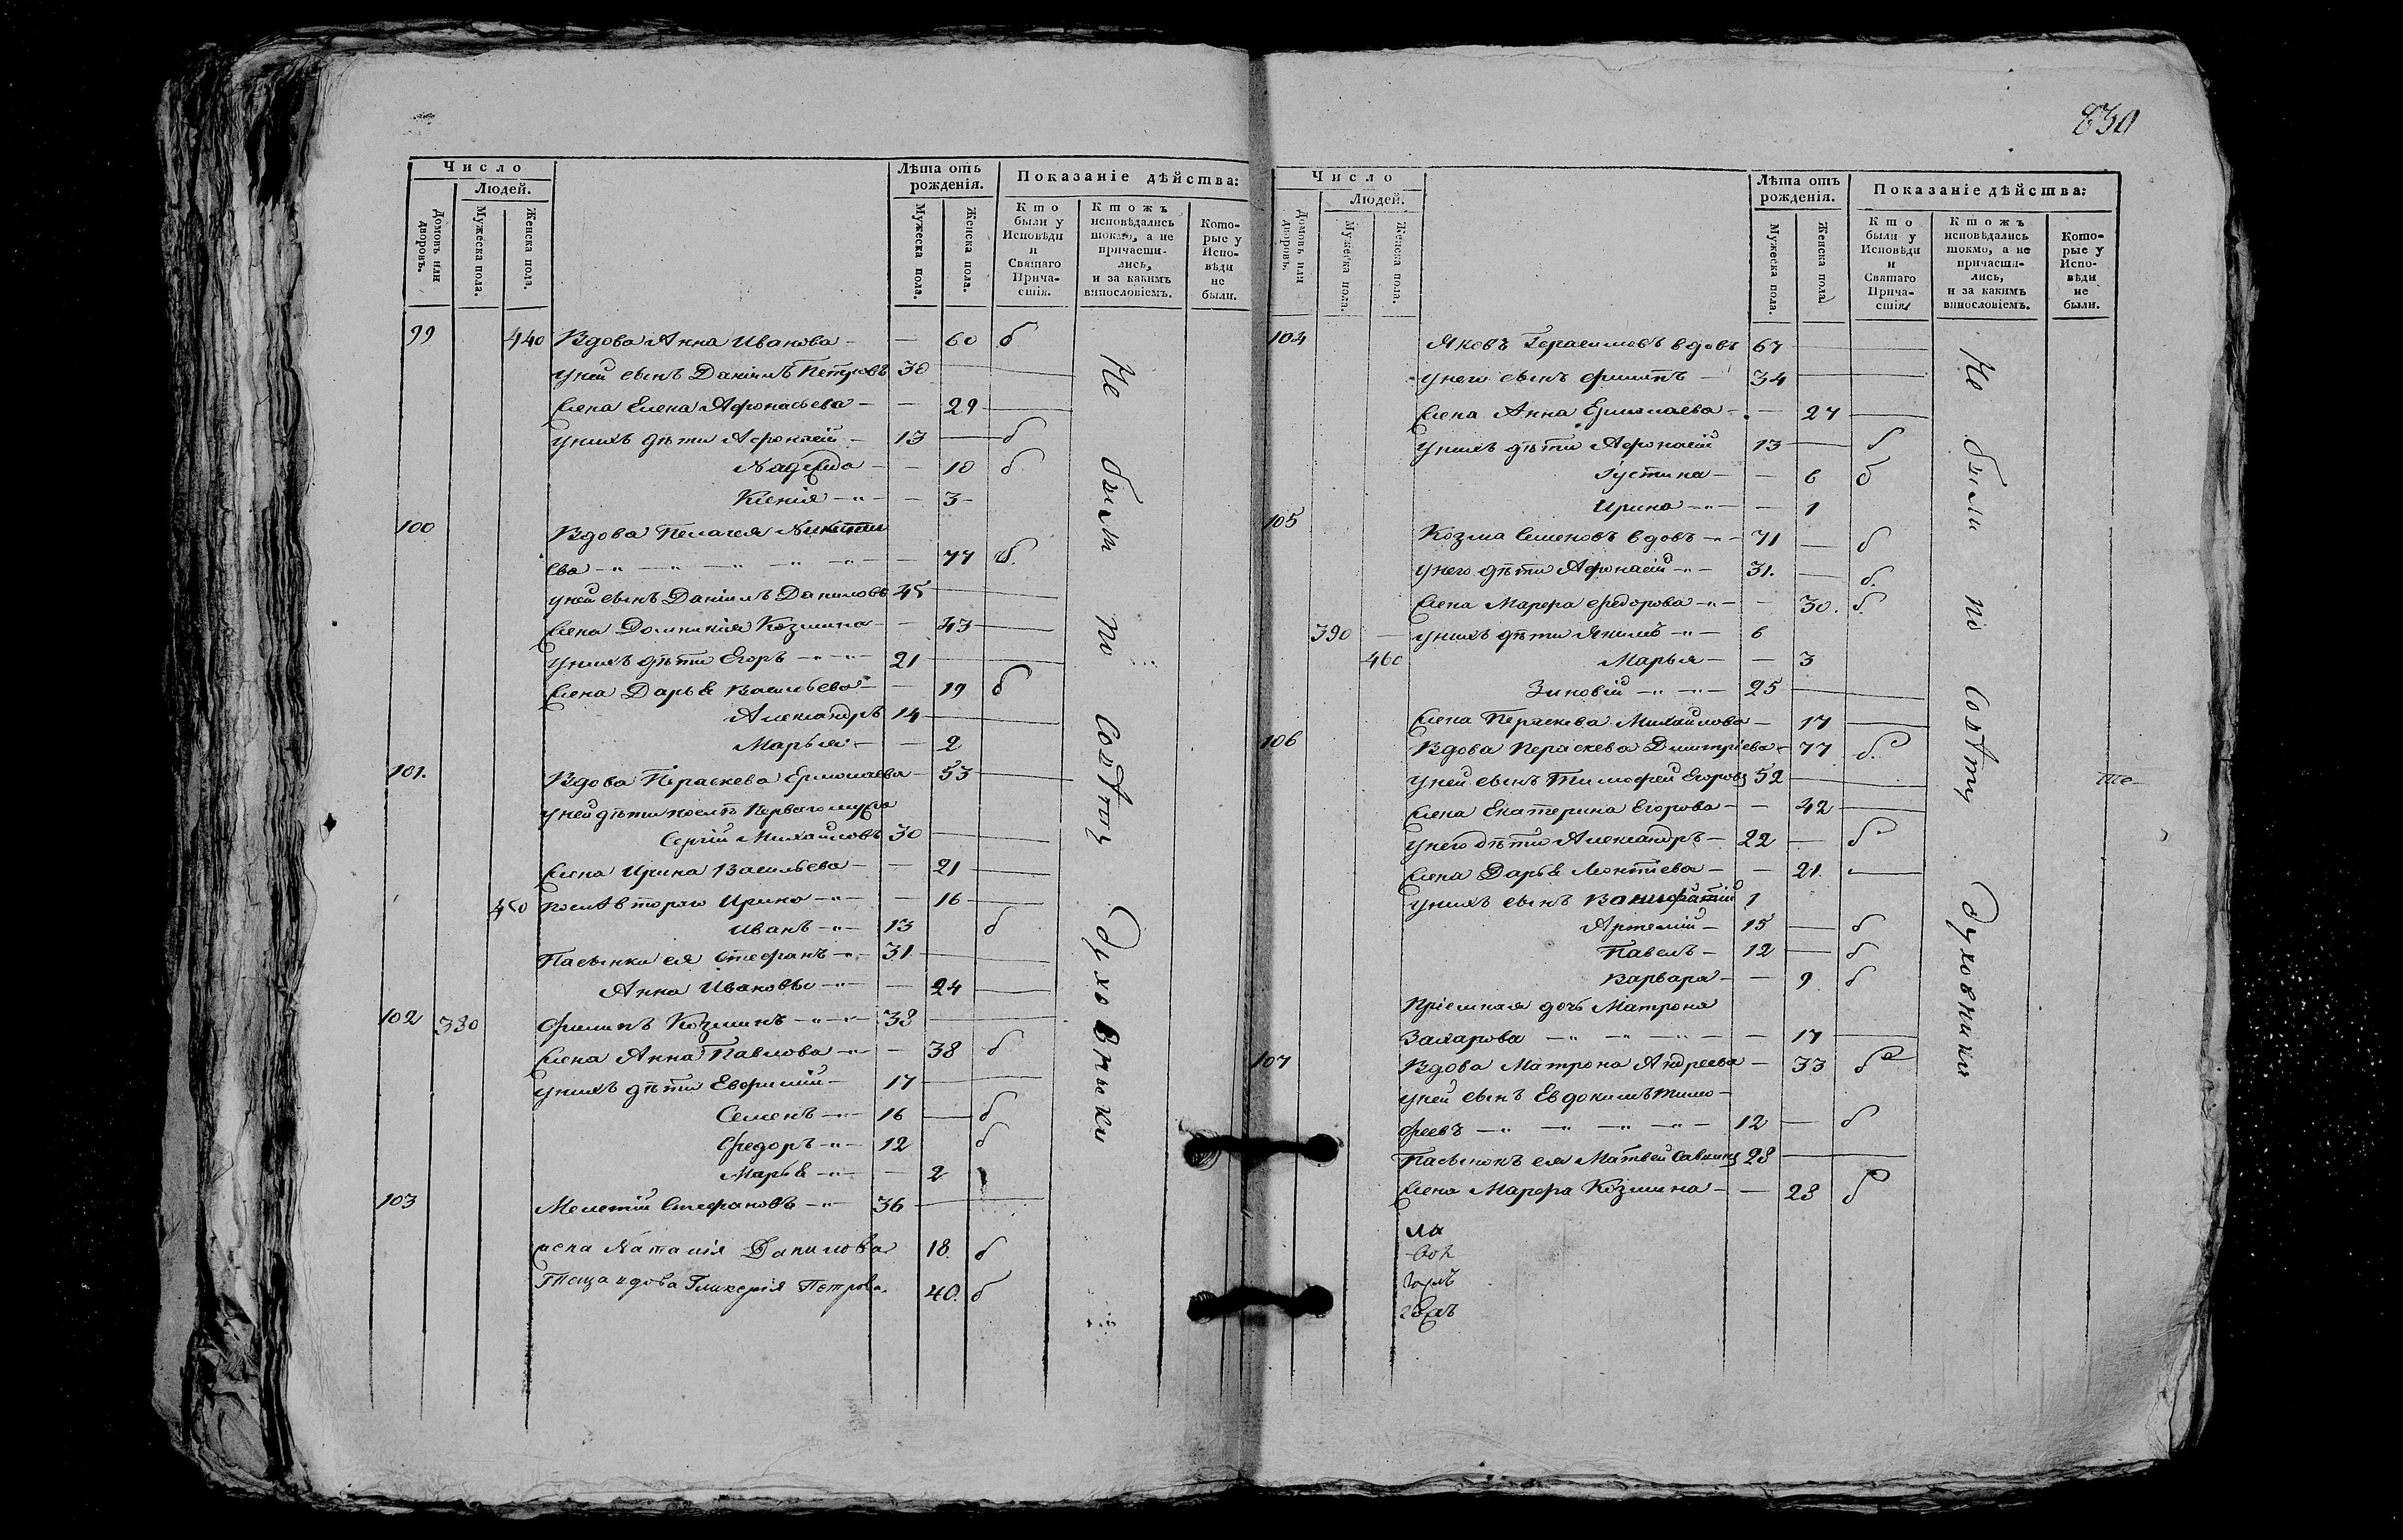 830
Число
Людей.
Домовъ или дворовъ.
Мужеска пола.
Женска пола.
Лѣта отъ рожденія.
Мужеска пола.
Женска пола.
Показаніе дѣйства:
Кто были у Исповѣди и Святаго Причастія.
Ктожъ исповѣдались токмо, а не причастились, и за какимъ винословіемъ.
Которые у Исповѣди не были.
99 440 Вдова Анна Иванова - — 60 б
У ней сынъ Даніилъ Петровъ 30 —
Жена Елена Афонасьева - — 29 —
У нихъ дѣти Афонасій - 13 — б
Надежда - — 10 б
Ксенія - — 3
100 Вдова Пелагея Никити
ева — 77 б.
У ней сынъ Даніилъ Даниловъ 45 —
Жена Домникия Козмина - — 43 —
У нихъ дѣти Егоръ - 21 —
Жена Дарья Васильева - — 19 б
Александръ 14 —
Марья - — 2
101. Вдова Параскева Ермолаева - 53 —
У ней дѣти послѣ перваго мужа
Сергій Михайловъ 30 —
Жена Ирина Васильева - — 21 —
450 Послѣ втораго Ирина - — 16 —
Иванъ - 13 б
Пасынки ея Стефанъ - 31 —
Анна Ивановы - — 24 —
102 380 Филипъ Козминъ - 38 —
Жена Анна Павлова - — 38 б
У нихъ дѣти Евфимій - 17 —
Семенъ - 16 — б
Федоръ - 12 б
Марья - — 2
103 Мелетій Стефановъ - 36 —
жена Наталія Данилова 18. б
Теща вдова Гликерія Петрова. 40. б
Не были по совѣту Духовныки
Число
Людей.
Домовъ или дворовъ.
Мужеска пола.
Женска пола.
Лѣта отъ рожденія.
Мужеска пола.
Женска пола.
Показаніе дѣйства:
Кто были у Исповѣди и Святаго Причастія.
Ктожъ исповѣдались токмо, а не причастились, и за какимъ винословіемъ.
Которые у Исповѣди не были.
104 Яковъ Герасимовъ вдовъ 67 —
У него сынъ Филипъ - 34 —
Жена Анна Ермолаева - — 27 —
У нихъ дѣти Афонасій 13 — б
Іустина - — 6 б
Ирина - — 1
105 Козма Семеновъ вдовъ - 71 — б
У него дѣти Афонасій - 31. — б.
Жена Марфа Федорова - — 30. б.
390 — У нихъ дѣти Якимъ - 6
460 Марья - — 3
Зиновій - 25 —
Жена Параскева Михайлова - 17 —
106 Вдова Параскева Дмитріева - 77 б.
У ней сынъ Тимофей Егоровъ 52 —
Жена Екатерина Егорова - — 42 —
У него дѣти Александръ - 22 — б.
Жена Дарья Леонтіева - — 21. —
У нихъ сынъ Вонифатій 1
Артемій - 15 — б
Павелъ - 12 — б
Варвара - — 9 б
Пріемная дочь Матрона
Захарова — 17 —
107 Вдова Матрона Андреева - 33 б
У ней сынъ Евдокимъ Тимо-
феевъ — 12 — б
Пасынокъ ея Матвей Савинъ 28 —
Жена Марфа Козмина - — 28 б
Не были по совѣту Духовники